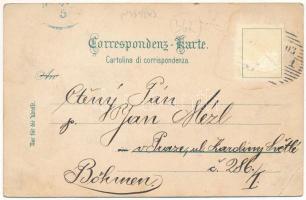 5
Correspondenz-Karte.
Cartolina di corrispondenza.
Nur für die Adresse.
Ctěný Pán
p. Jan Mézl
v Praze, ul. Karoliny Světlé
č. 286/I
Böhmen